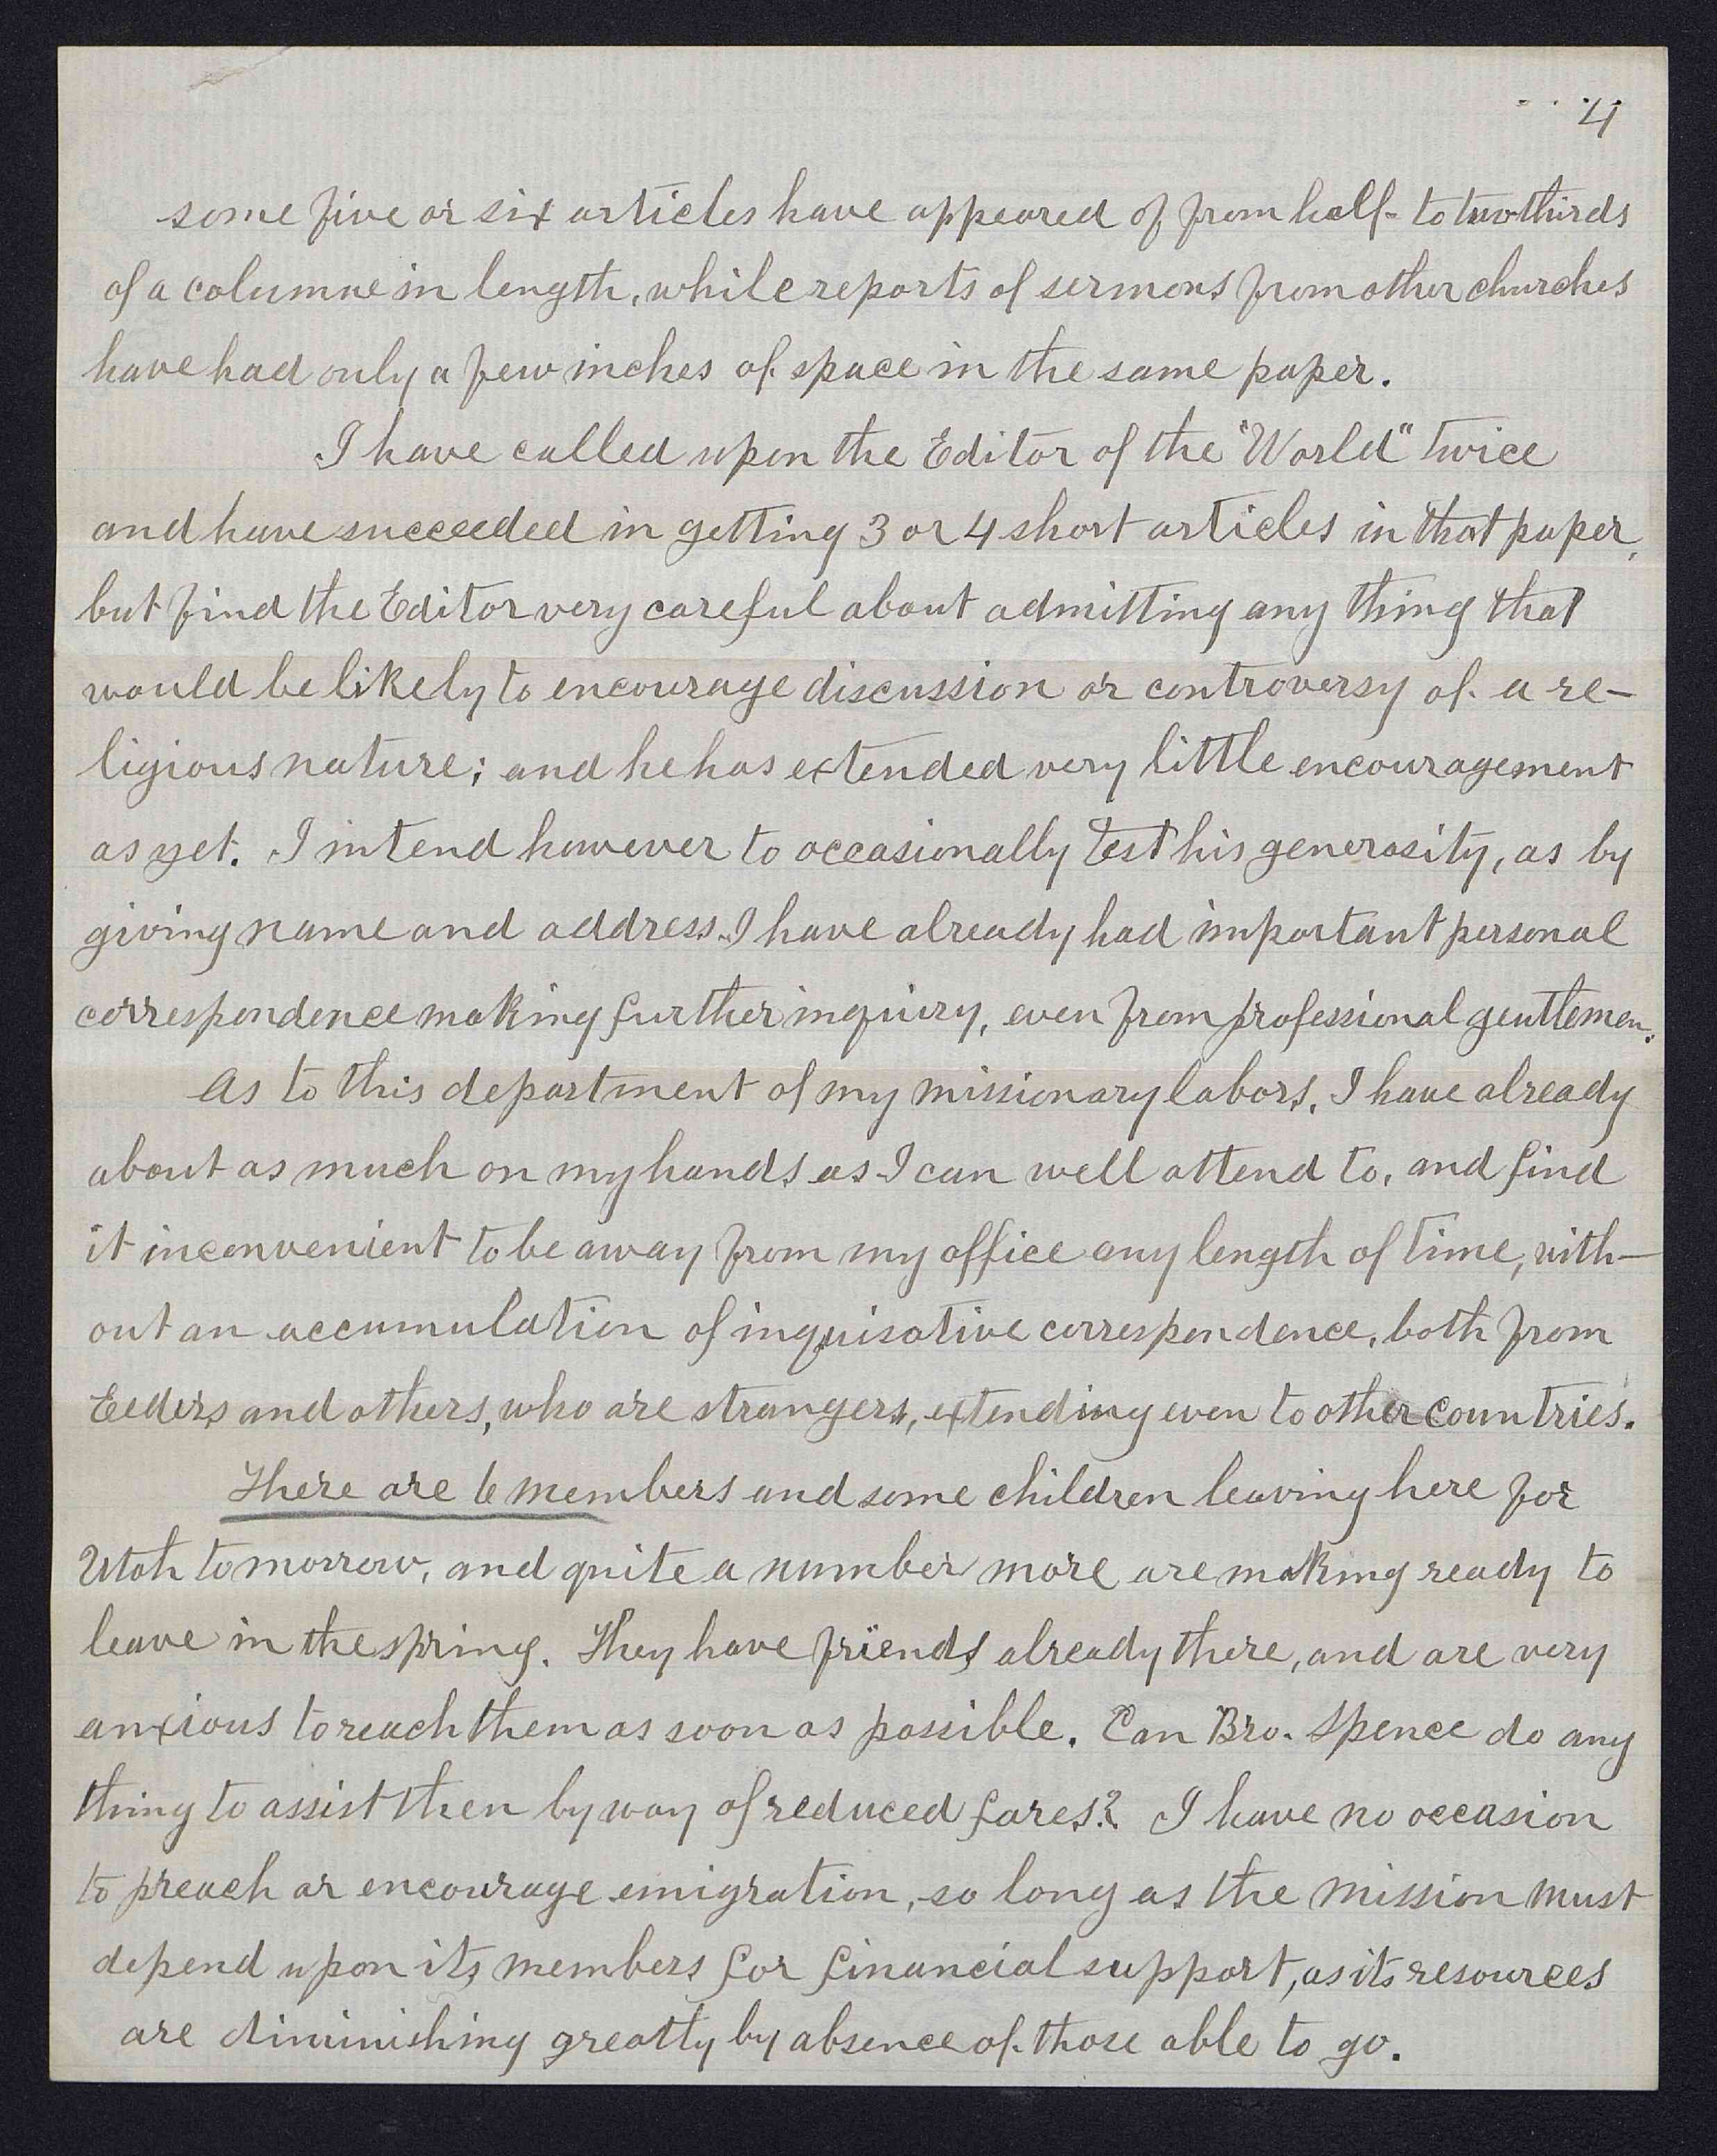 4
some five or six articles have appeared of from half- to two thirds
of a columne in length, while reports of sermons from other churches
have had only a few inches of space in the same paper.
I have called upon the Editor of the "World" twice
and have succeeded in getting 3 or 4 short articles in that paper,
but find the Editor very careful about admitting any thing that
would be likely to encourage discussion or controversy of a re-
ligious nature; and he has extended very little encouragement
as yet. I intend however to occasionally test his generosity, as by
giving name and address I have already had important personal
correspondence making further inquiry, even from professional gentlemen.
As to this department of my missionary labors, I have already
about as much on my hands as I can well attend to, and find
it inconvenient to be away from my office any length of time, with-
out an accumulation of inquisative correspondence, both from
Eelders and others, who are strangers, extending even to other countries.
There are 6 members and some children leaving here for
Utah tomorrow, and quite a number more are making ready to
leave in the spring. They have friends already there, and are very
anxious to reach them as soon as possible. Can Bro. Spence do any
thing to assist then by way of reduced fares? I have no occasion
to preach or encourage emigration, so long as the mission must
depend upon its members for financial support, as its resources
are diminishing greatly by absence of those able to go.